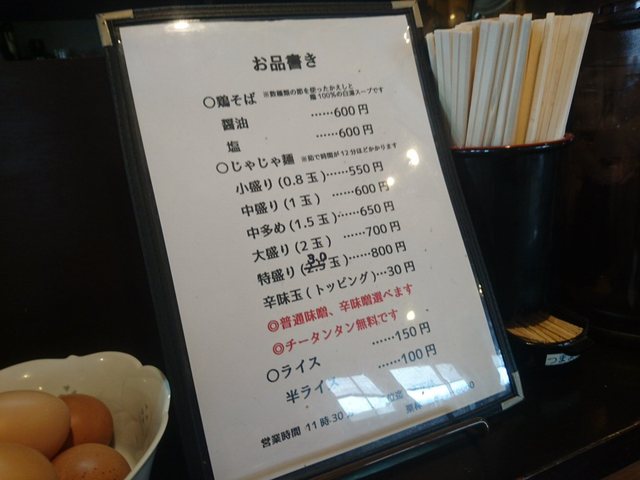 お品書き
○鶏そば ※数種類の節を使ったかえしと
鶏100%の白湯スープです
醤油 ……600円
塩 ……600円
○じゃじゃ麺 ※茹で時間が12分ほどかかります
小盛り(0.8玉)……550円
中盛り(1玉) ……600円
中多め(1.5玉)……650円
大盛り(2玉) ……700円
3.0
特盛り(2.5玉)……800円
辛味玉(トッピング)…30円
◎普通味噌、辛味噌選べます
◎チータンタン無料です
○ライス ……150円
半ライス ……100円
営業時間 11時30
つま